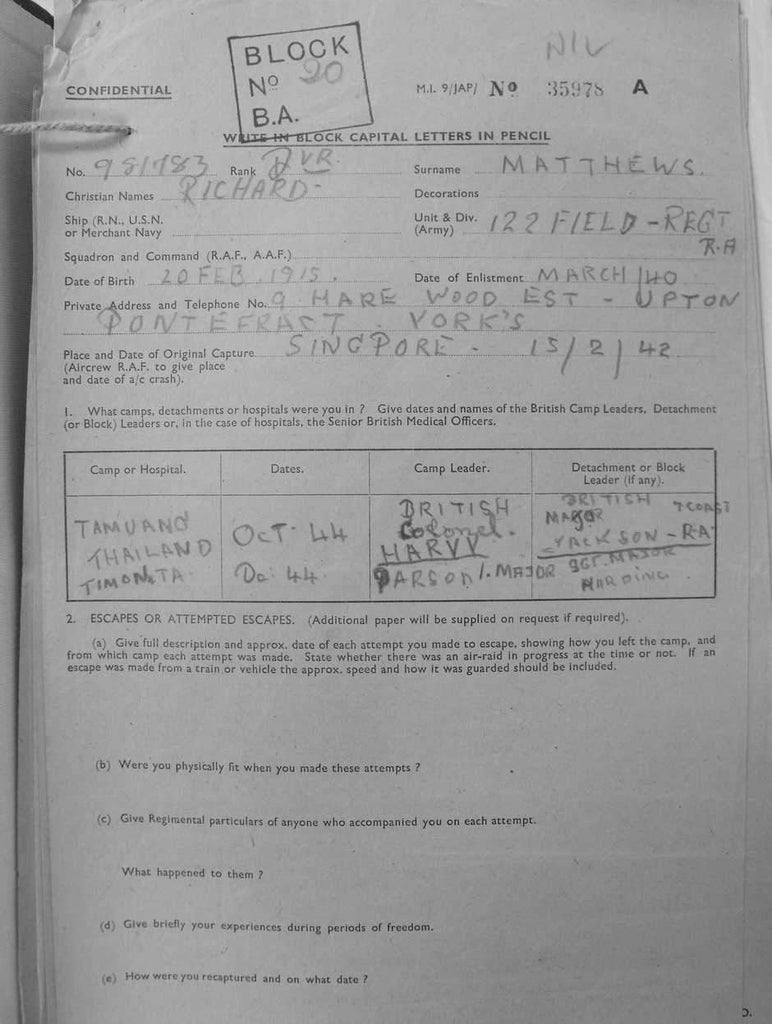 BLOCK
Nº 20
B.A.
NIL
CONFIDENTIAL
M.I. 9/JAP/ Nº 35978 A
WRITE IN BLOCK CAPITAL LETTERS IN PENCIL
No. 981783 Rank DVR. Surname MATTHEWS.
Christian Names RICHARD- Decorations
Ship (R.N., U.S.N. or Merchant Navy
Unit & Div. (Army) 122 FIELD-REGT
R.A
Squadron and Command (R.A.F., A.A.F.)
Date of Birth 20 FEB. 1915. Date of Enlistment MARCH/40
Private Address and Telephone No. 9 HARE WOOD EST - UPTON
PONTEFRACT. YORK'S
Place and Date of Original Capture SINGPORE - 15/2/42
(Aircrew R.A.F. to give place
and date of a/c crash).
1. What camps, detachments or hospitals were you in ? Give dates and names of the British Camp Leaders, Detachment
(or Block) Leaders or, in the case of hospitals, the Senior British Medical Officers.
Camp or Hospital. Dates. Camp Leader. Detachment or Block Leader (if any).
TAMUANG
THAILAND
OCT. 44
BRITISH
Colonel.
BRITISH
MAJOR
JACKSON - RA
DE: 44
MAJOR SGT. MAJOR
HARDING
2. ESCAPES OR ATTEMPTED ESCAPES. (Additional paper will be supplied on request if required).
(a) Give full description and approx. date of each attempt you made to escape, showing how you left the camp, and
from which camp each attempt was made. State whether there was an air-raid in progress at the time or not. If an
escape was made from a train or vehicle the approx. speed and how it was guarded should be included.
(b) Were you physically fit when you made these attempts ?
(c) Give Regimental particulars of anyone who accompanied you on each attempt.
What happened to them ?
(d) Give briefly your experiences during periods of freedom.
(e) How were you recaptured and on what date ?